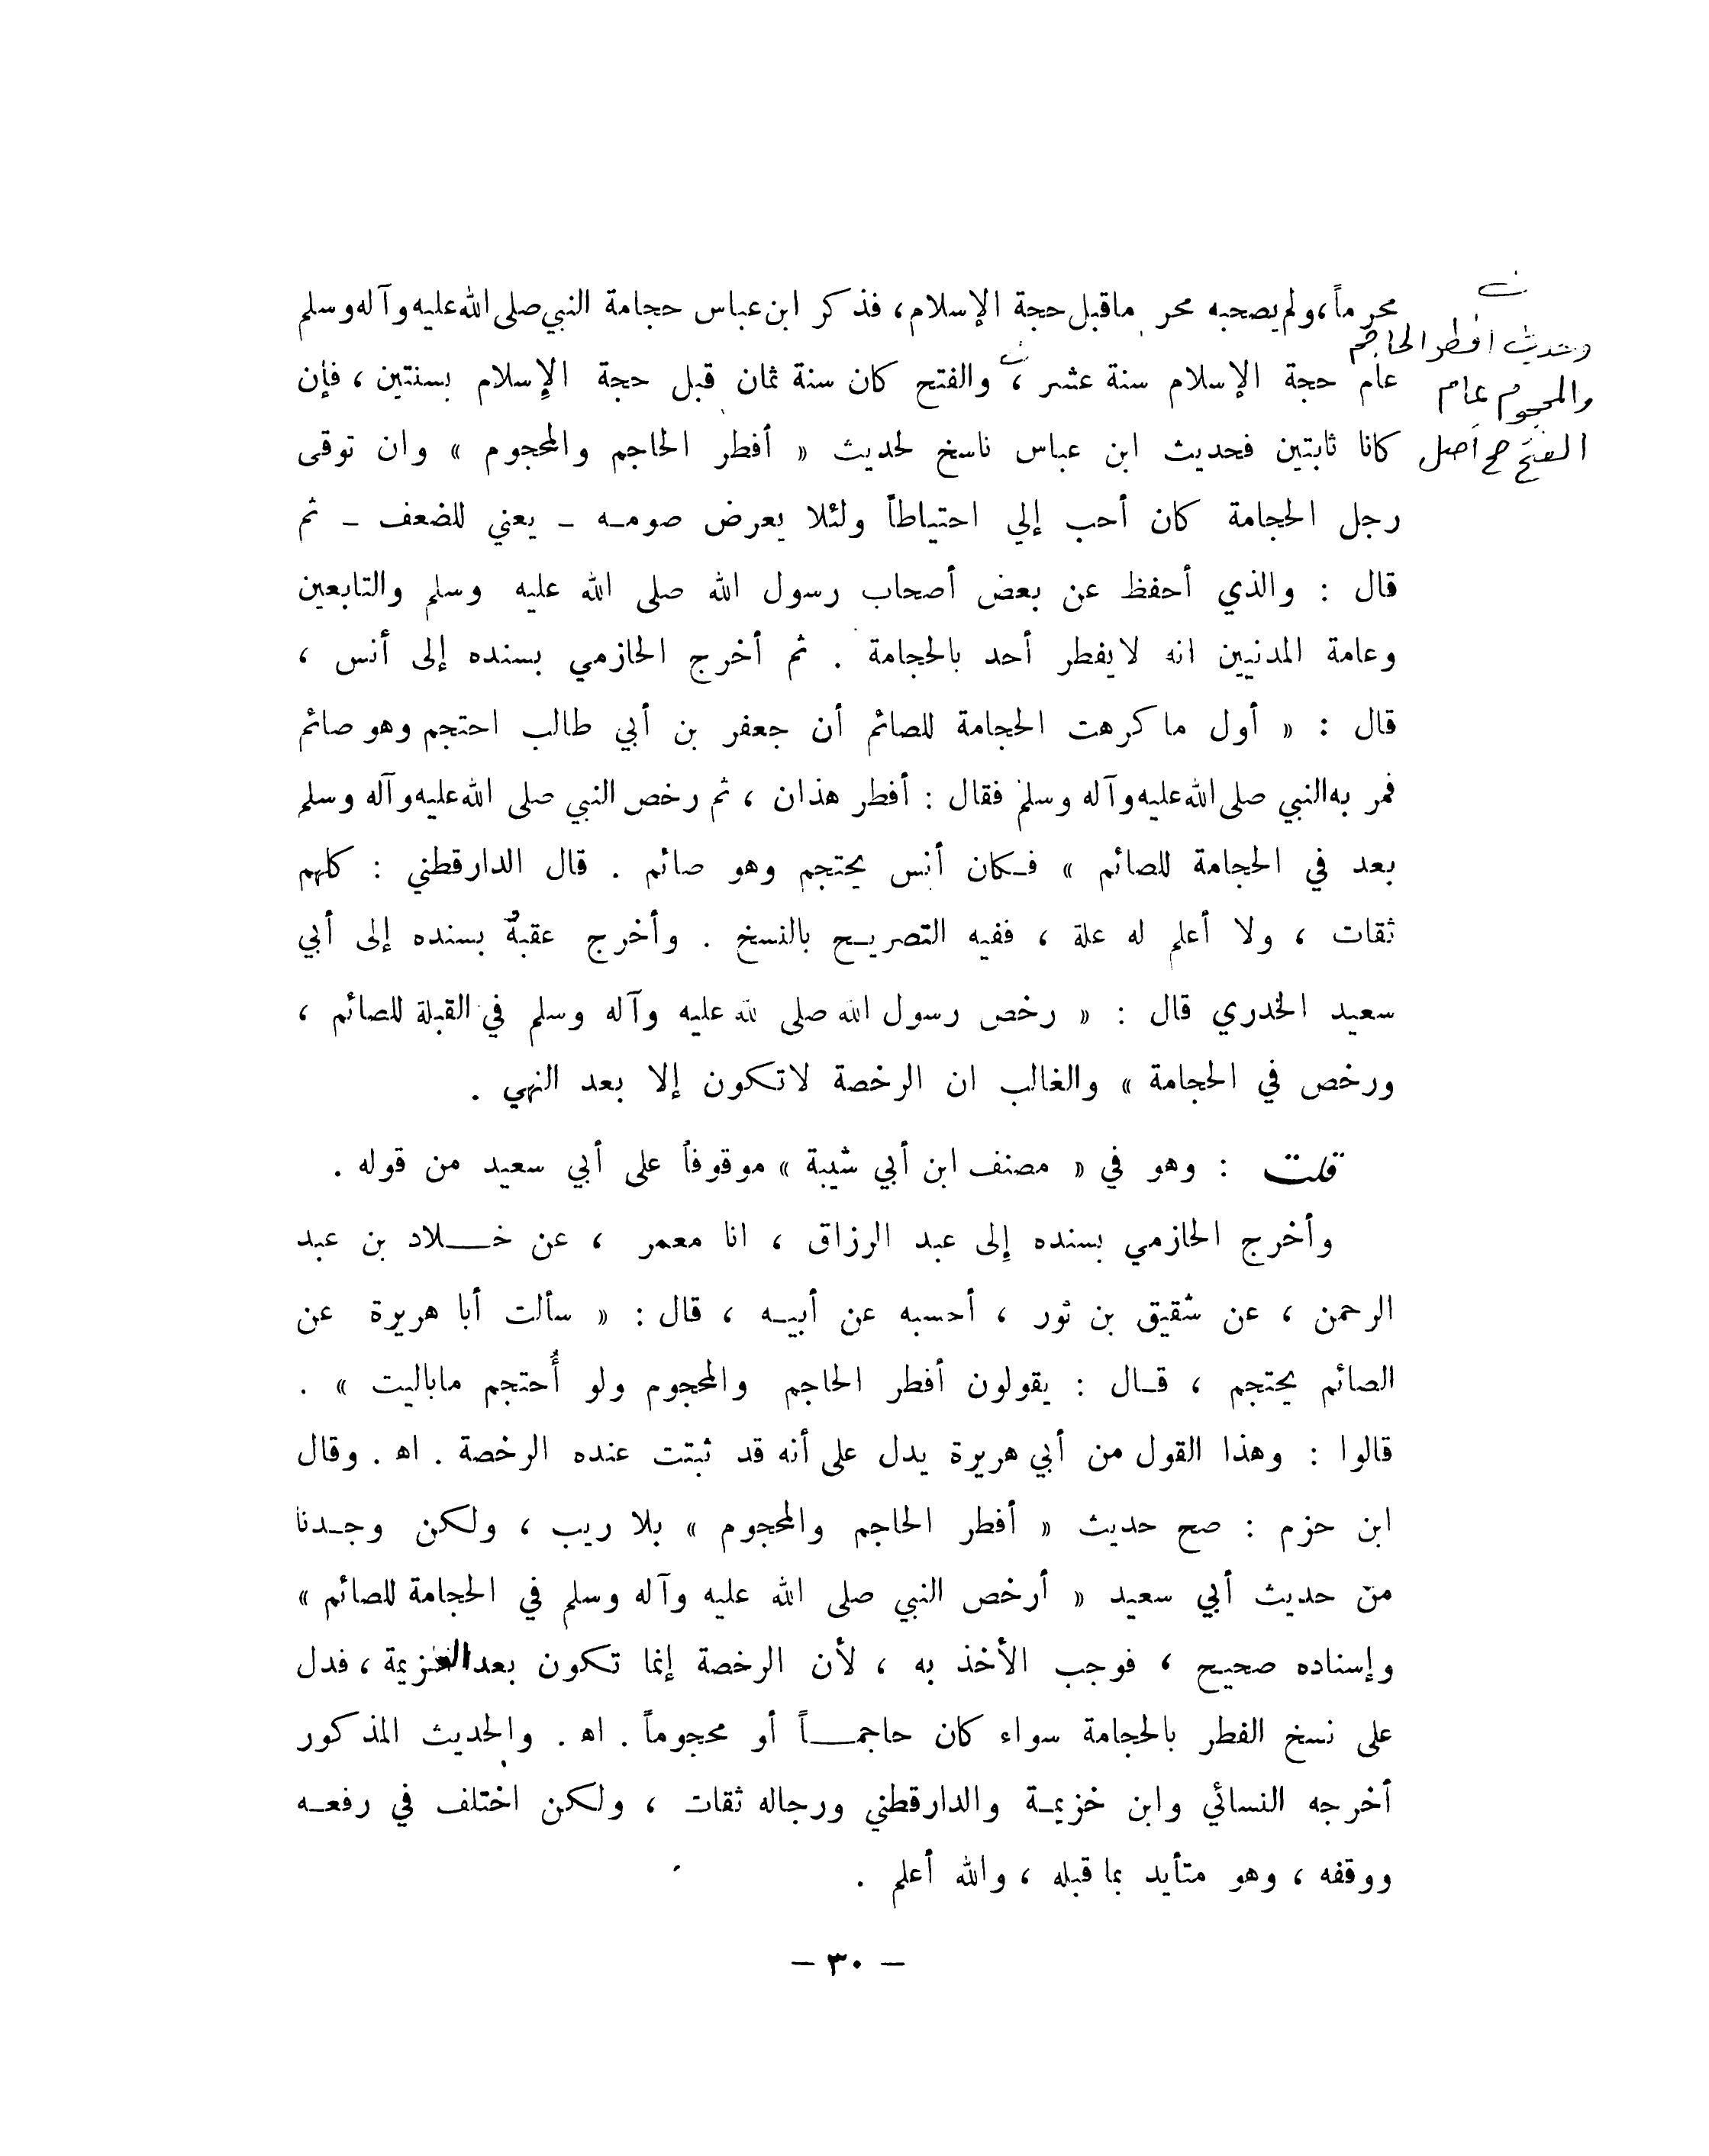 محرماً، ولم يصحبه محر ماقبل حجة الإسلام، فذكر ابن عباس حجامة النبي صلى الله عليه وآله وسلم
وحديث افطر الحاجم
عام حجة الإسلام سنة عشر ، والفتح كان سنة ثمان قبل حجة الإسلام بسنتين ، فإن
والمحجوم عام
كانا ثابتين فحديث ابن عباس ناسخ لحديث « أفطر الحاجم والمحجوم » وان توقى
الفتح صح أصل
رجل الحجامة كان أحب إلي احتياطاً ولئلا يعرض صومـه - يعني للضعف - ثم
قال : والذي أحفظ عن بعض أصحاب رسول الله صلى الله عليه وسلم والتابعين
وعامة المدنيين انه لايفطر أحد بالحجامة . ثم أخرج الحازمي بسنده إلى أنس ،
قال : « أول ما كرهت الحجامة للصائم أن جعفر بن أبي طالب احتجم وهو صائم
فمر به النبي صلى الله عليه وآله وسلم فقال : أفطر هذان ، ثم رخص النبي صلى الله عليه وآله وسلم
بعد في الحجامة للصائم » فـكان أنس يحتجم وهو صائم . قال الدارقطني : كلهم
ثقات ، ولا أعلم له علة ، ففيه التصريـح بالنسخ . وأخرج عقبهُ بسنده إلى أبي
سعيد الخدري قال : « رخص رسول الله صلى لله عليه وآله وسلم في القبلة للصائم ،
ورخص في الحجامة » والغالب ان الرخصة لاتكون إلا بعد النهي .
قلت : وهو في « مصنف ابن أبي شيبة » موقوفاً على أبي سعيد من قوله .
وأخرج الحازمي بسنده إلى عبد الرزاق ، انا معمر ، عن خـــلاد بن عبد
الرحمن ، عن شقيق بن ثور ، أحسبه عن أبيـه ، قال : « سألت أبا هريرة عن
الصائم يحتجم ، قـال : يقولون أفطر الحاجم والمحجوم ولو أُحتجم ماباليت » .
قالوا : وهذا القول من أبي هريرة يدل على أنه قد ثبتت عنده الرخصة . اه . وقال
ابن حزم : صح حديث « أفطر الحاجم والمحجوم » بلا ريب ، ولكن وجـدنا
من حديث أبي سعيد « أرخص النبي صلى الله عليه وآله وسلم في الحجامة للصائم »
وإسناده صحيح ، فوجب الأخذ به ، لأن الرخصة إنما تكون بعد العزيمة ، فدل
على نسخ الفطر بالحجامة سواء كان حاجمـــاً أو محجوماً . اه . والحديث المذكور
أخرجه النسائي وابن خزيمـة والدارقطني ورجاله ثقات ، ولكن اختلف في رفعـه
ووقفه ، وهو متأيد بما قبله ، والله أعلم .
- ٣٠ -